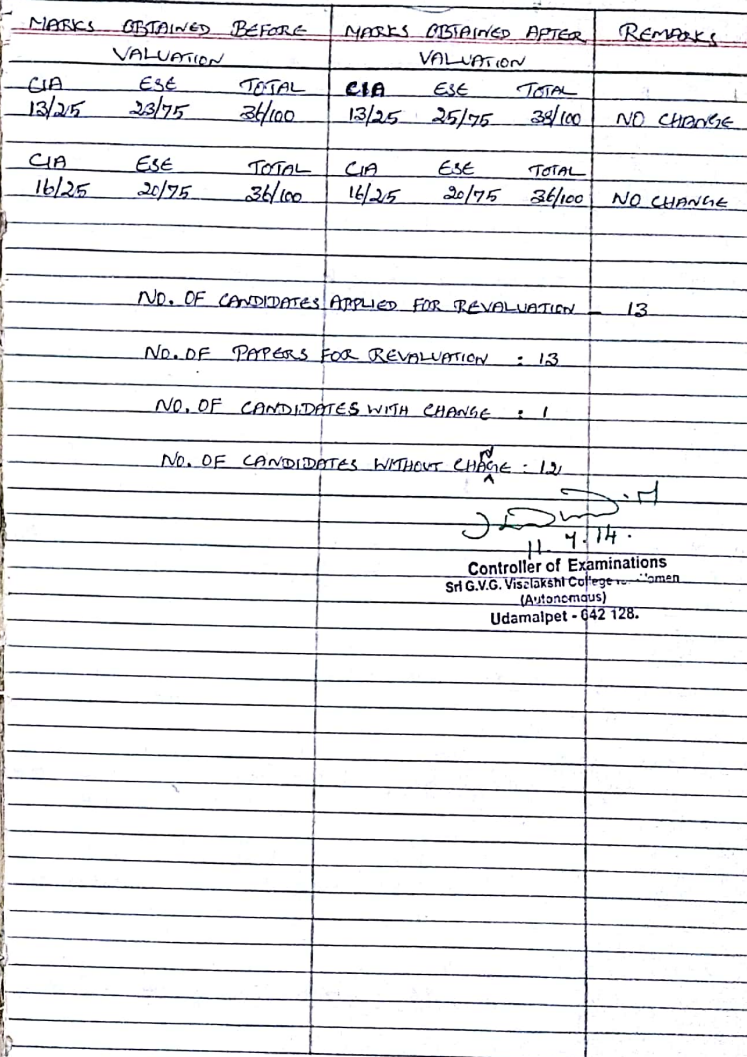 MARKS OBTAINED BEFORE MARKS OBTAINED AFTER REMARKS
VALUATION VALUATION
CIA ESE TOTAL CIA ESE TOTAL
13/25 23/75 36/100 13/25 25/75 38/100 NO CHANGE
CIA ESE TOTAL CIA ESE TOTAL
16/25 20/75 36/100 16/25 20/75 36/100 NO CHANGE
NO. OF CANDIDATES APPLIED FOR REVALUATION - 13
NO. OF PAPERS FOR REVALUATION : 13
NO. OF CANDIDATES WITH CHANGE : 1
NO. OF CANDIDATES WITHOUT CHANGE : 12
11.4.14.
Controller of Examinations
Sri G.V.G. Visalakshi College Women
(Autonomous)
Udamalpet - 642 128.